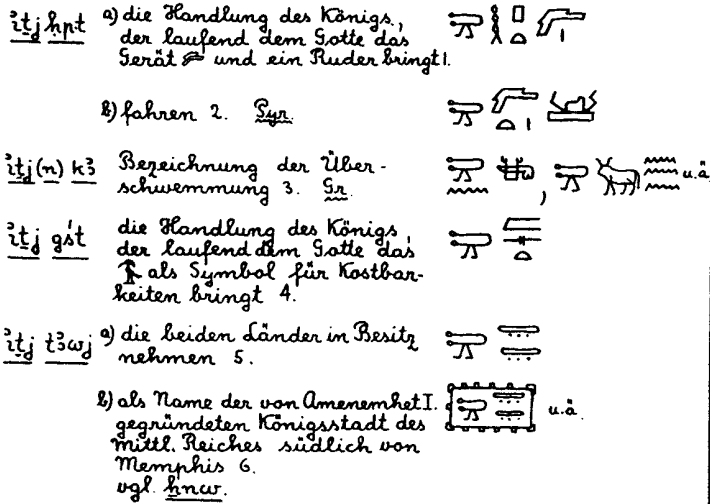 ỉṯj ḥpt a) die Handlung des Königs,
der laufend dem Gotte das
Gerät und ein Ruder bringt 1.
b) fahren 2. Pyr.
ỉṯj (n) kꜣ Bezeichnung der Über-
schwemmung 3. Gr. , u.ä.
ỉṯj gśt die Handlung des Königs,
der laufend dem Gotte das
als Symbol für Kostbar-
keiten bringt 4.
ỉṯj tꜣwj a) die beiden Länder in Besitz
nehmen 5.
b) als Name der von Amenemhet I.
gegründeten Königsstadt des
Mittl. Reiches südlich von u.ä.
Memphis 6.
vgl. ẖnw.